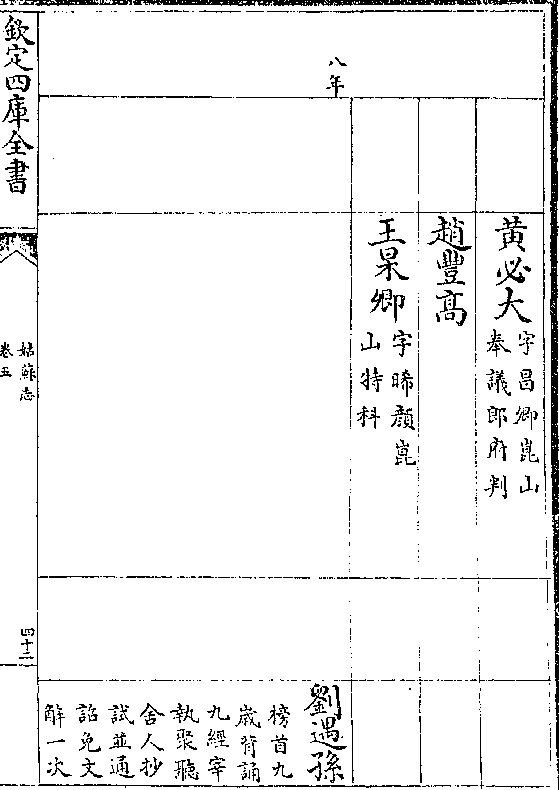 黄必大
字昌卿崑山
奉議郎府判
趙豐高
王杲卿
字晞顔崑
山特科
八年
劉遇孫
榜首九
歲背誦
九經宰
執聚聽
舍人抄
試並通
詔免文
解一次
欽定四庫全書
姑蘇志
卷五
四十二